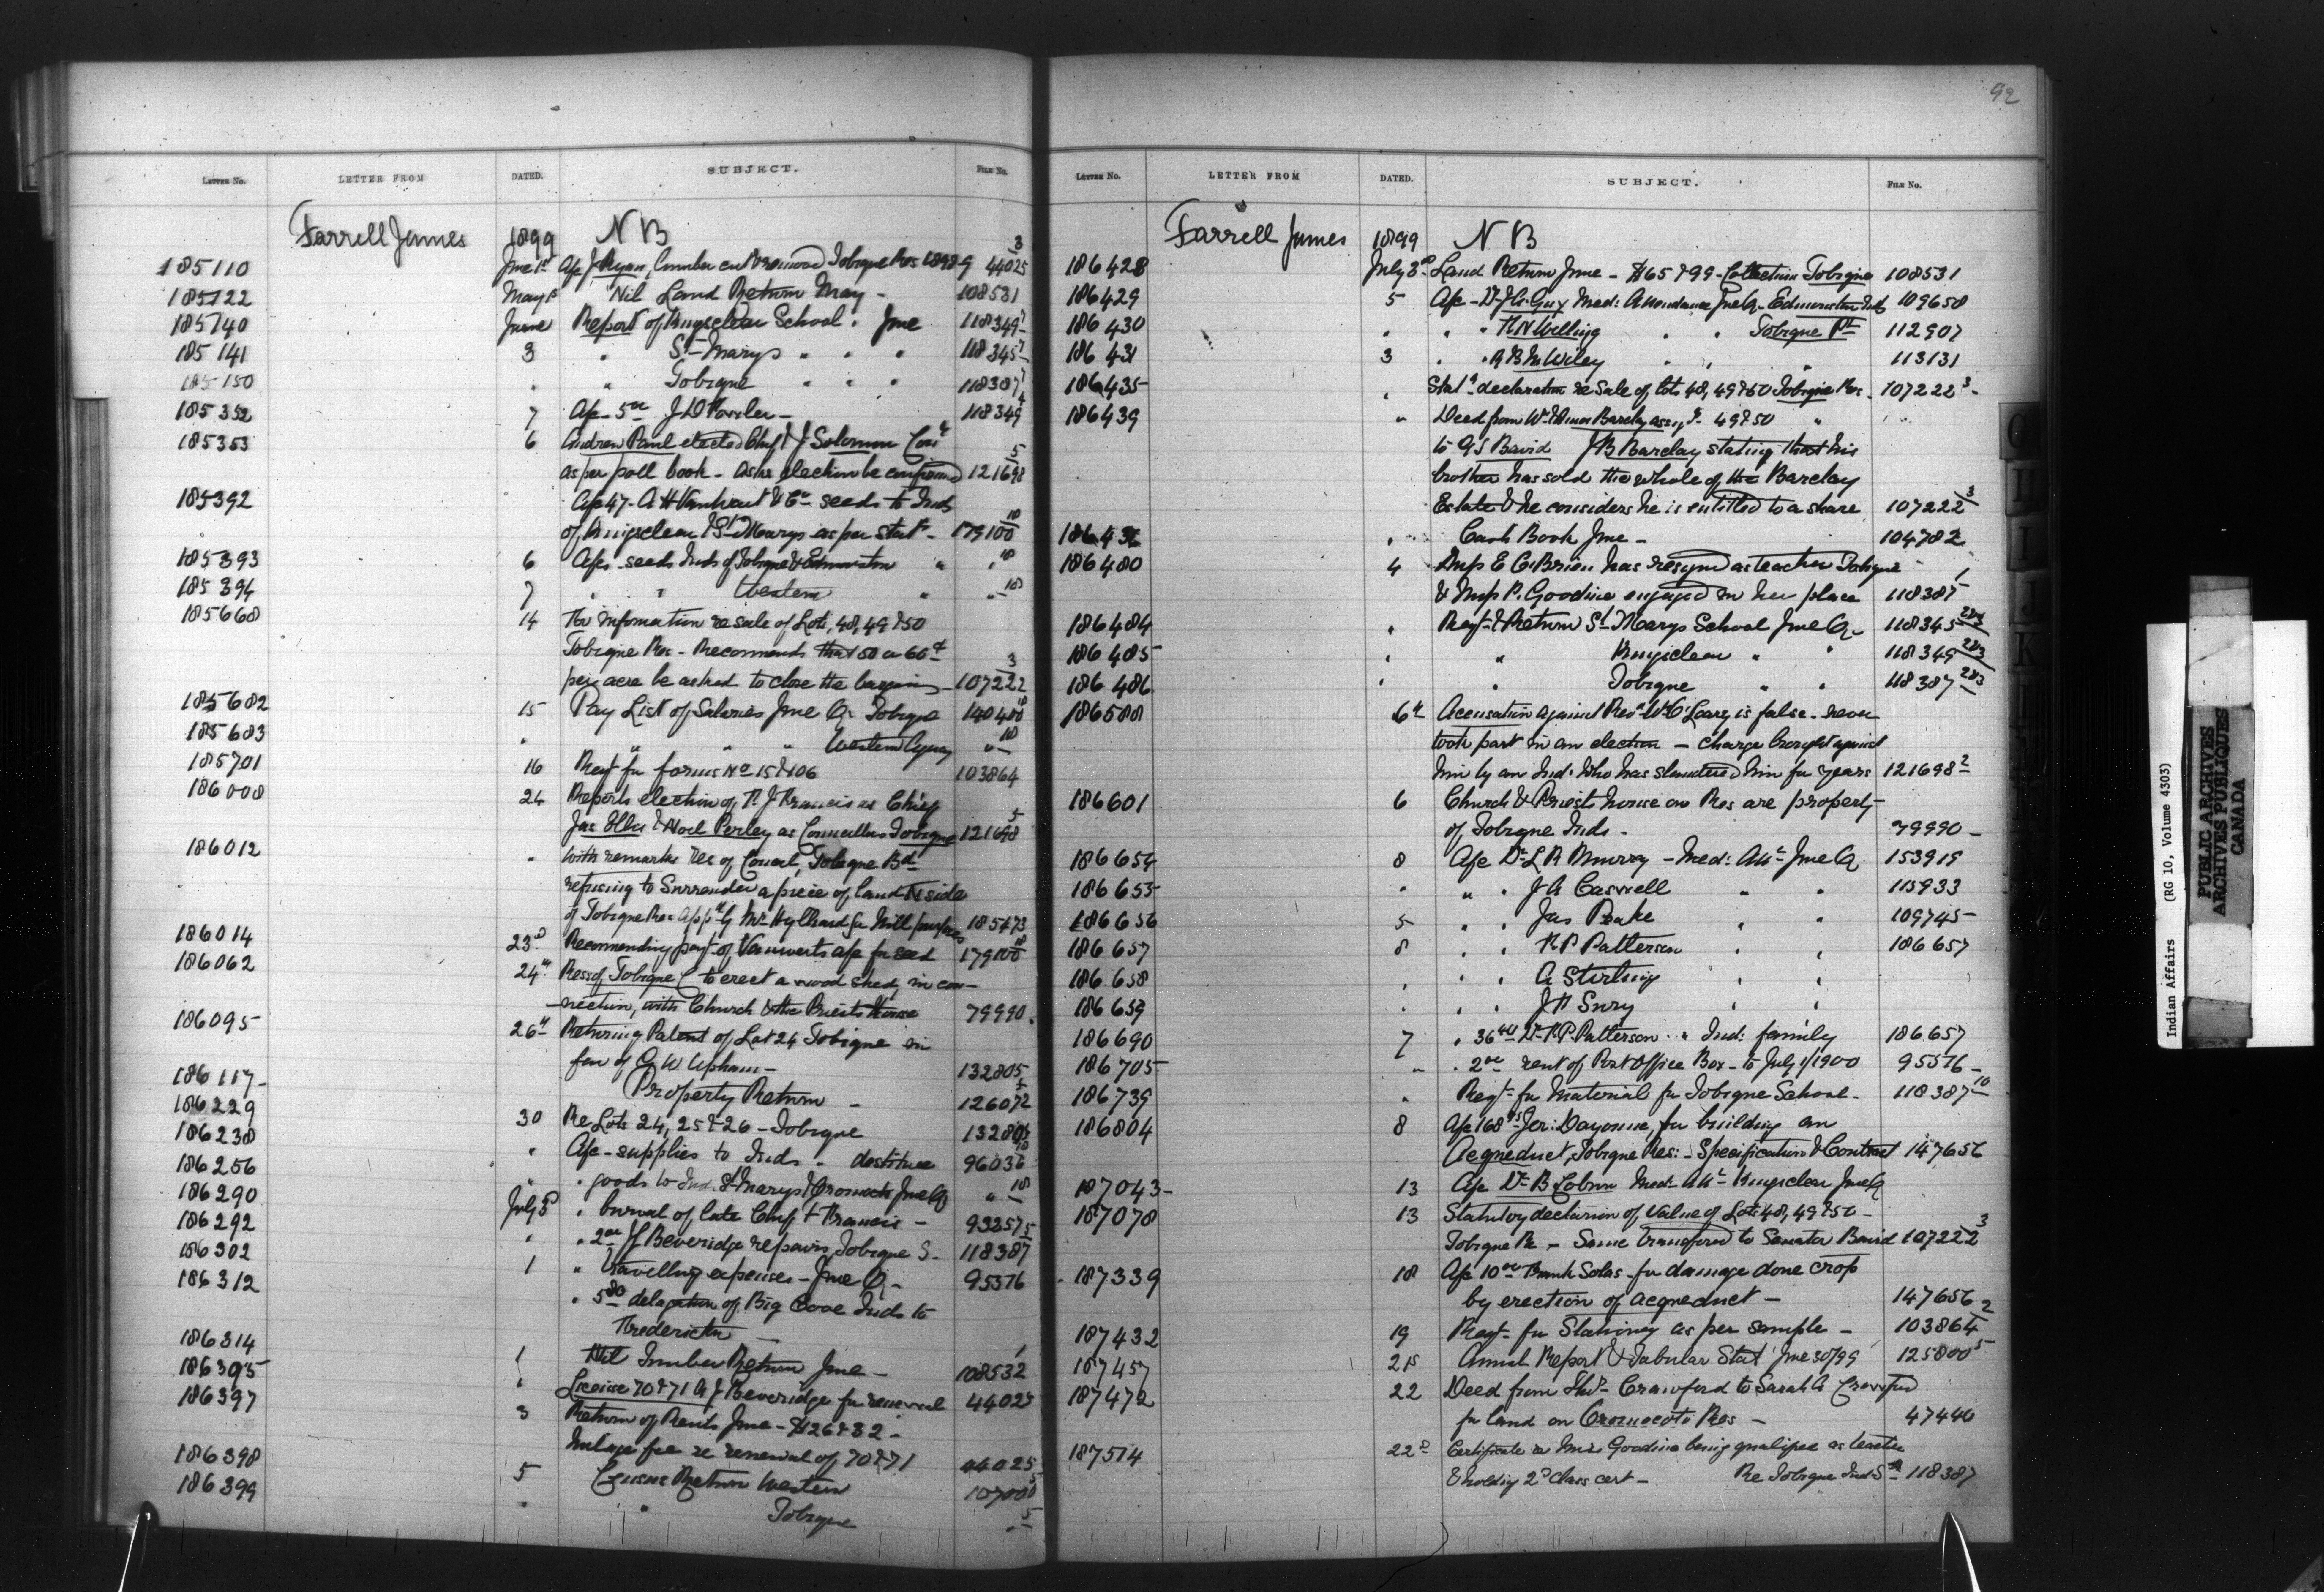 92
LETTER No. LETTER FROM DATED. SUBJECT. FILE No.
Farrell James 1899 N B
185110 June 1st J Ryan, 44025
185122 May Nil Land Return May - 108531
185140 June Report of Kingsclear School. June 118349
185141 3 " St Marys " " " 118345
185150 " " Tobique " " " 118387
185352 7 118349
185353 6 Andrew Paul elected Chief & J Solomon
as per poll book - Asks election be confirmed 121698
185392 seeds to Inds
of Kingsclear & St Marys as per stat - 179100
185393 6 seeds Inds of Tobique & Edmunston " "
185394 7 " " Western " "
185668 14 information re sale of Lots, 48, 49 & 50
Tobique Res - Recommends that 50 or 60 ct
per acre be asked to close the bargain - 107222
185682 15 Pay List of Salaries June Qr Tobique 140400
185683 " " " " Western Agency "
185701 16 Reqt for forms No 15 & 106 103864
186008 24 Reports election of Francis as Chief
& Noel Perley as Councillors Tobique 121698
186012 " with remarks Res of Council, Tobique Bd
refusing to Surrender a piece of land N side
of Tobique Res by Mr Hylliard for Mill purposes 185173
186014 23d Recommending payt of Vanwarts for seed 179100
186062 24th Res of Tobique C to erect a wood shed, in con-
nection, with Church & the Priests House 79990
186095 26th Returning Patent of Lot 24 Tobique in
fav of G W Upham - 132805
186117 Property Return - 126072
186229 30 Re Lots 24, 25 & 26 - Tobique 132805
186238 " supplies to Inds " destitute 96036
186256 " " goods to Ind. St Marys & Oromocto June Qr "
186290 July 3d " burial of late Chief Francis - 93257
186292 " " 2 00 Beveridge repairs Tobique S. 118387
186302 1 " travelling expenses - June Qr - 95516
186312 " delegation of Big Cove Inds to
Fredericton
186314 1 Nil Timber Return June - 108532
186395 " License 70 & 71 A J Beveridge for renewal 44025
186397 3 Return of Rents June - $126 & 32 -
re renewal of 70 & 71 44025
186398 5 Census Return Western 107000
186399 " " Tobique "
LETTER No. LETTER FROM DATED. SUBJECT. FILE No.
Farrell James 1899 N B
186428 July 3d Land Return June - $65 & 99 - Collections Tobique 108531
186429 5 Med: Attendance June Qr Edmunston Inds 109658
186430 " " " " " Tobique Pt 112907
186431 3 " " " " 113131
186435 " declaration re Sale of lots 48, 49 & 50 Tobique Res. 107222 3
186439 " Deed from Barclay 49 & 50 " "
to G S Baird J B Barclay stating that his
brother has sold the whole of the Barclay
Estate & he considers he is entitled to a share 107222 3
186436 " Cash Book June - 104782
186480 4 Miss E O'Brien has resigned as teacher Tobique
& Miss P. Goodine engaged in her place 118387
186484 " Reqt & Return St Marys School June Qr 118345
186485 " " Kingsclear " " 118349
186486 " " Tobique " " 118387
186588 6th Accusation against Revd Wm O'Leary is false - never
took part in an election - charge brought against
him by an Ind. who has slandered him for years 121698 2
186601 6 Church & Priests house on Res are property
of Tobique Inds - 79990 -
186654 8 Dr L R Murray - Med: Att June Qr 153919
186655 " " " J A Caswell " " 113933
186656 5 " " Jas Peake " " 109745
186657 8 " " R P Patterson " " 186657
186658 " " " A Stirling " "
186659 " " " " "
186690 7 " 36 Dr R P Patterson " Ind: family 186657
186705 " " 2 00 rent of Post Office Box - to July 1/1900 95516
186739 " Reqt for Material for Tobique School - 118387 10
186804 8 168 for building an
Acqueduct, Tobique Res: - Specification & Contract 147656
187043 13 Med: Att Kingsclear June Qr
187078 13 Statutory declarion of value of Lots 48, 49 & 50 -
Tobique Re - Same transfered to Senator Baird 107222 3
187339 18 10 00 Frank Solas - for damage done crop
by erection of acqueduct - 147656
187432 19 Reqt - for Stationey as per sample - 103864 2
187457 21st Annual Report & Tabular Stat June 30/99 125800 5
187472 22 Deed from Crawford to Sarah A Crawford
for land on Oromocoto Res - 47446
187514 22d Certificate re Miss Goodine being qualified as teacher
& holding 2d class cert - Re Tobique Ind: S 118387
Indian Affairs (RG 10, Volume 4303)
PUBLIC ARCHIVES
ARCHIVES PUBLIQUES
CANADA